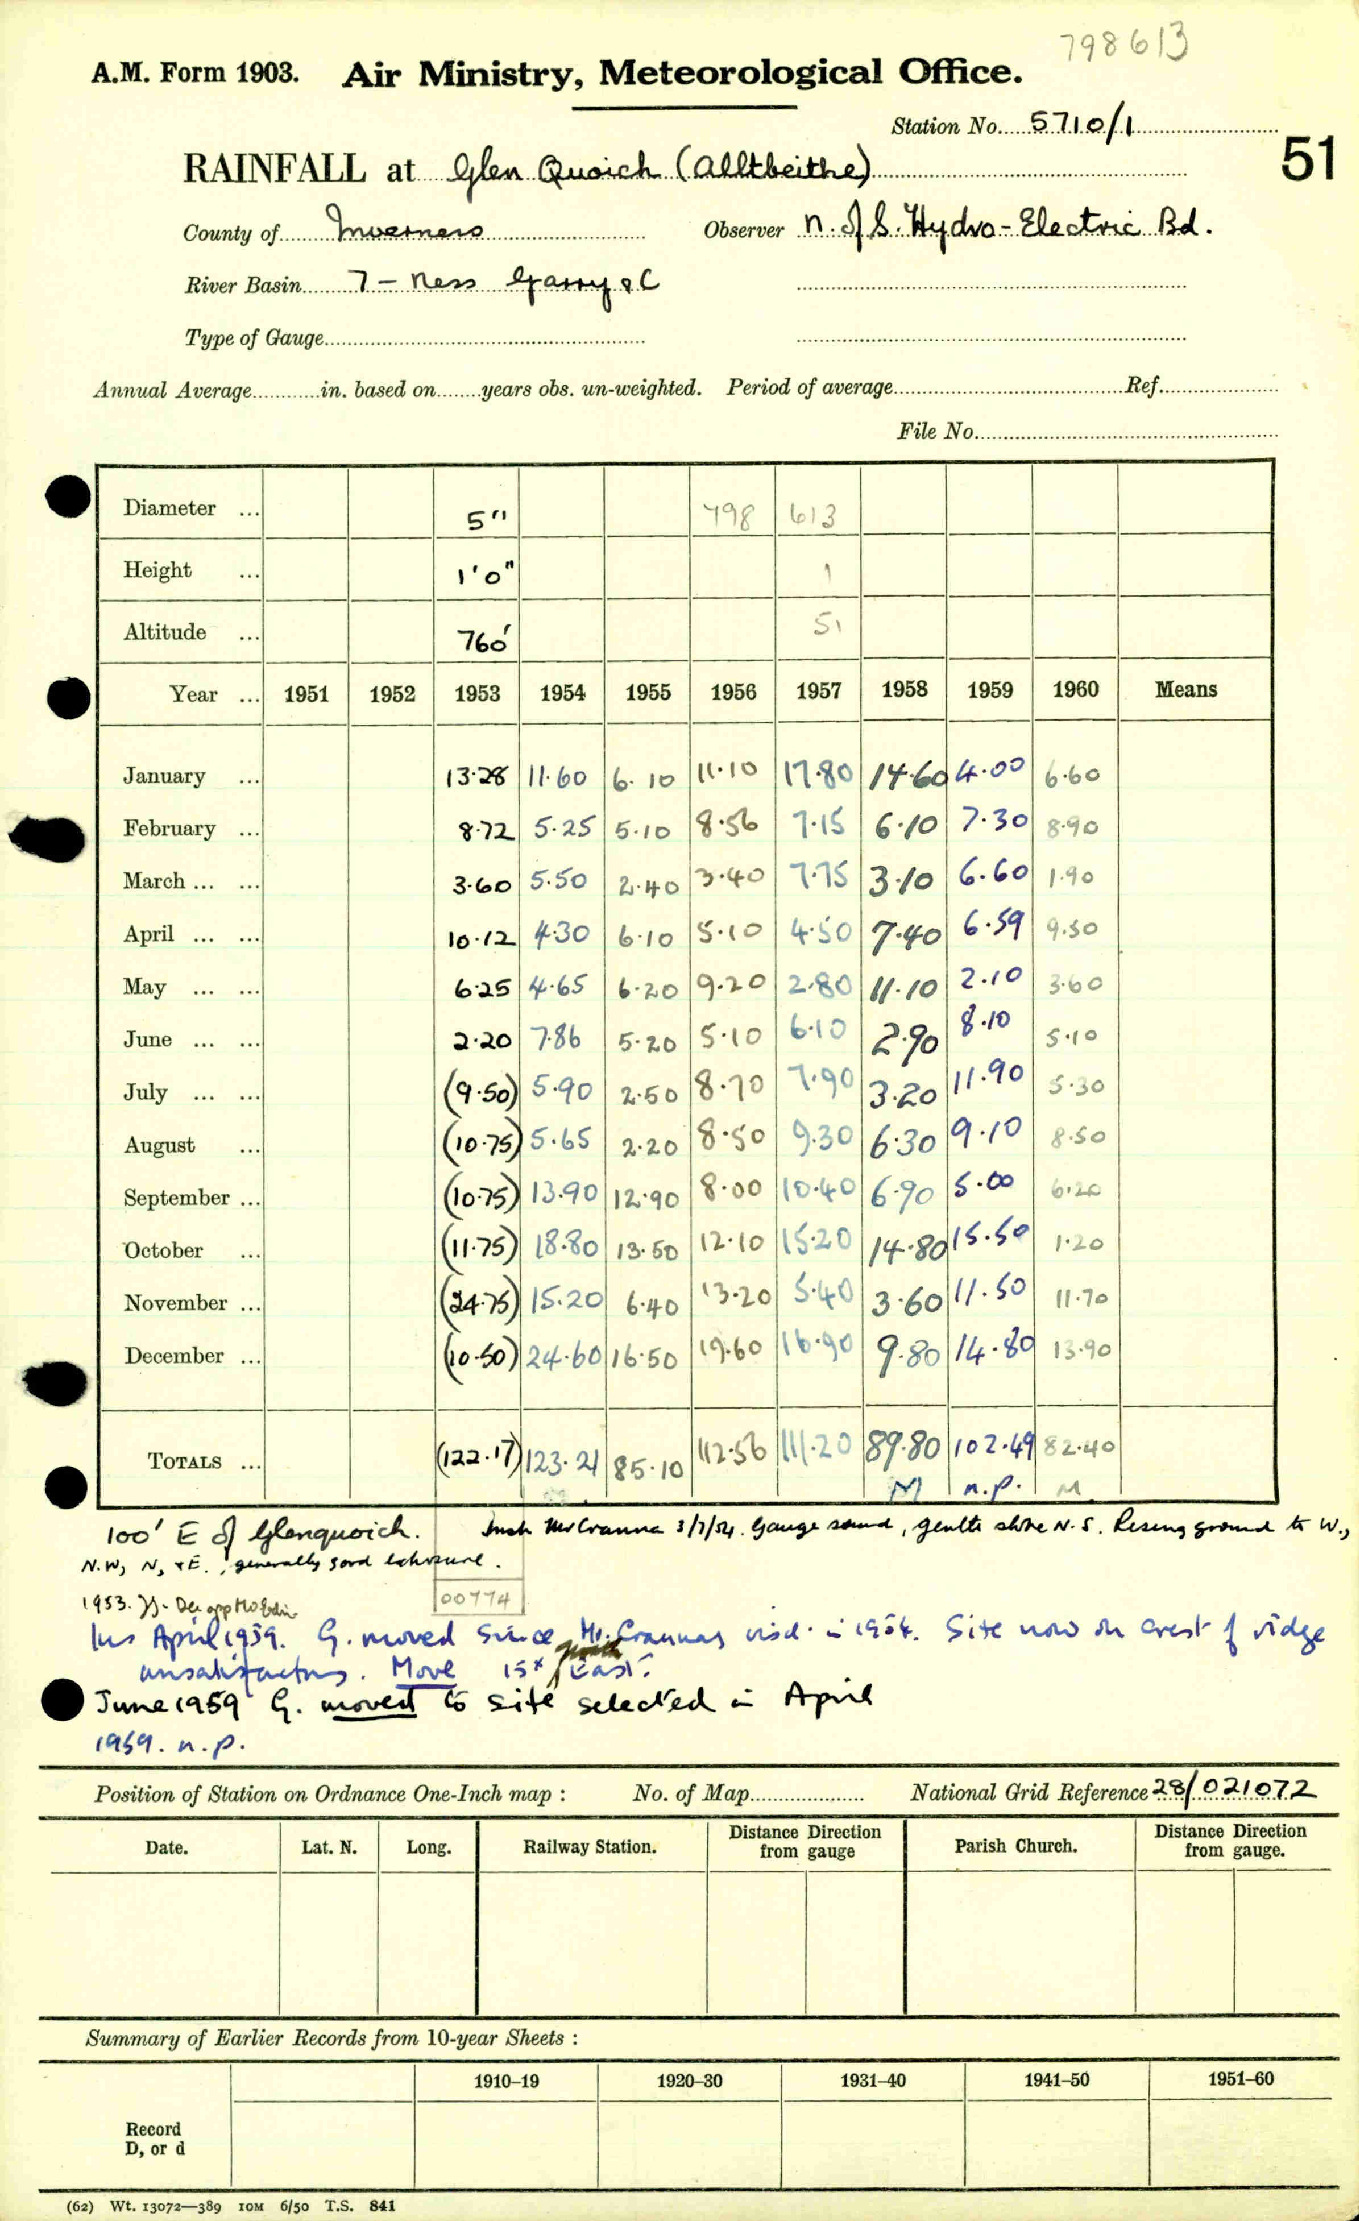 798613
A.M. Form 1903. Air Ministry, Meteorological Office.
Station No. 5710/1
51
RAINFALL at Glen Quoich (Alltbeithe)
County of Inverness Observer N. of S. Hydro-Electric Bd.
River Basin 7 - Ness Garry & C
Type of Gauge
Annual Average in. based on years obs. un-weighted. Period of average Ref.
File No.
Diameter ... 5" 798 613
Height ... 1'0" 1
Altitude ... 760' 51
Year ... 1951 1952 1953 1954 1955 1956 1957 1958 1959 1960 Means
January ... 13.28 11.60 6.10 11.10 17.80 14.60 4.00 6.60
February ... 8.72 5.25 5.10 8.56 7.15 6.10 7.30 8.90
March ... ... 3.60 5.50 2.40 3.40 7.75 3.10 6.60 1.90
April ... ... 10.12 4.30 6.10 5.10 4.50 7.40 6.59 9.50
May ... ... 6.25 4.65 6.20 9.20 2.80 11.10 2.10 3.60
June ... ... 2.20 7.86 5.20 5.10 6.10 2.90 8.10 5.10
July ... ... (9.50) 5.90 2.50 8.70 7.90 3.20 11.90 5.30
August ... (10.75) 5.65 2.20 8.50 9.30 6.30 9.10 8.50
September ... (10.75) 13.90 12.90 8.00 10.40 6.90 5.00 6.20
October ... (11.75) 18.80 13.50 12.10 15.20 14.80 15.50 1.20
November ... (24.75) 15.20 6.40 13.20 5.40 3.60 11.50 11.70
December ... (10.50) 24.60 16.50 19.60 16.90 9.80 14.80 13.90
TOTALS ... (122.17) 123.21 85.10 112.56 111.20 89.80 102.49 82.40
M n.p. M
100' E of Glenquoich. Insp. McCranna 3/7/54. Gauge sound, gentle slope N-S. Rising ground to W.,
N.W, N, & E., generally good
1953. Jy-Dec app MO Edin
00774
Ins April 1959. G. moved since Mr. Crannas visit in 1954. Site now on crest of ridge
unsatisfactory. Move 15x East.
June 1959 G. moved to site selected in April
1959. n.p.
Position of Station on Ordnance One-Inch map : No. of Map National Grid Reference 28/021072
Date. Lat. N. Long. Railway Station. Distance Direction from gauge Parish Church. Distance Direction from gauge.
Summary of Earlier Records from 10-year Sheets :
1910–19 1920–30 1931–40 1941–50 1951–60
Record
D, or d
(62) Wt. 13072—389 10M 6/50 T.S. 841